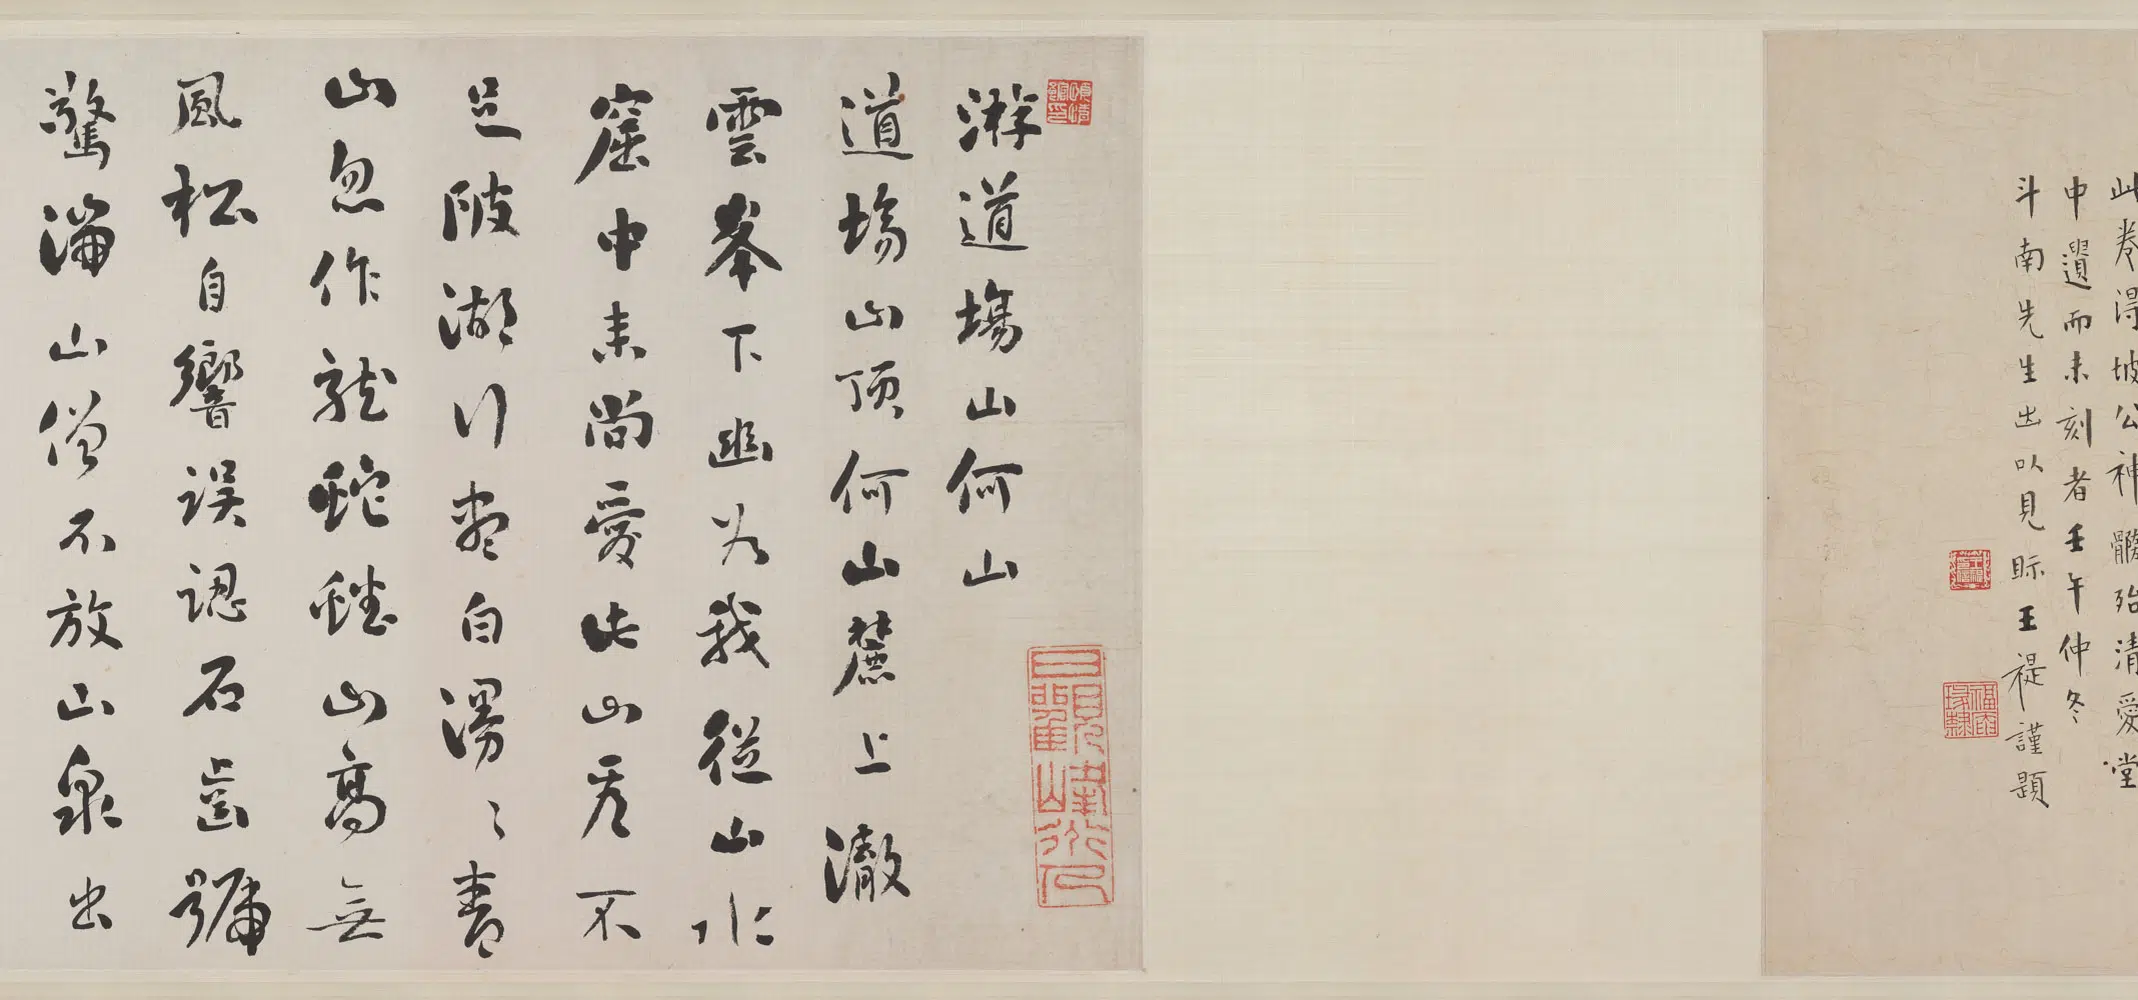 此卷得坡公神髓殆清愛堂
中遺而未刻者壬午仲冬
斗南先生出以見眎王禔謹題
游道場山何山
道場山頂何山麓上徹
雲峯下幽谷我從山水
窟中來尚愛此山看不
足陂湖行盡白漫〻青
山忽作龍蛇盤山高無
風松自響誤認石齒號
驚湍山僧不放山泉出